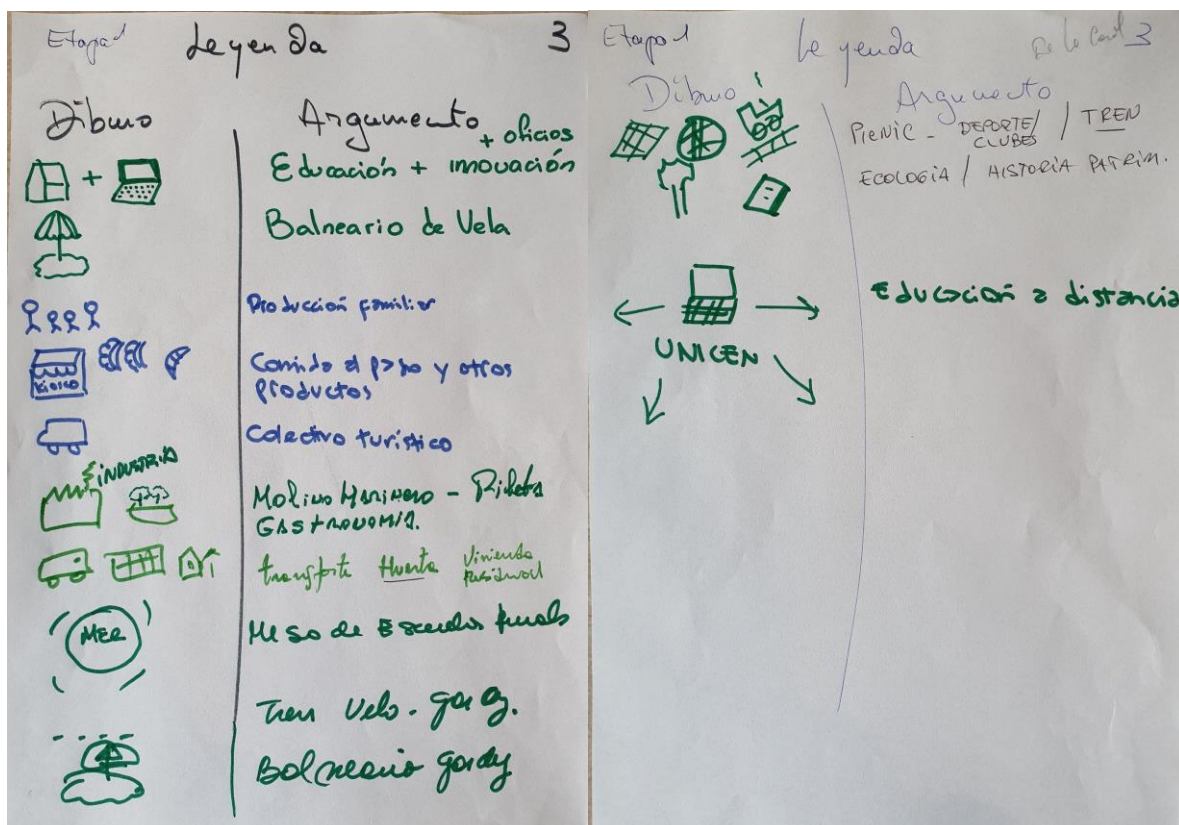 Etapa 1 Leyenda 3
Dibujo Argumento
+ oficios
+ Educación + innovación
Balneario de Vela
Producción familiar
Kiosco
Comida al paso y otros
productos
Colectivo turístico
INDUSTRIA
Molino Harinero -
GASTRONOMIA.
transporte Huerta Vivienda
MER
Mesa de Escuelas Rurales
Tren Vela - Gardey.
Balneario Gardey
Etapa 1 Leyenda 3
Dibujo Argumento
PICNIC - DEPORTE/ / TREN
CLUBES
ECOLOGIA / HISTORIA PATRIM.
Educación a distancia
UNICEN